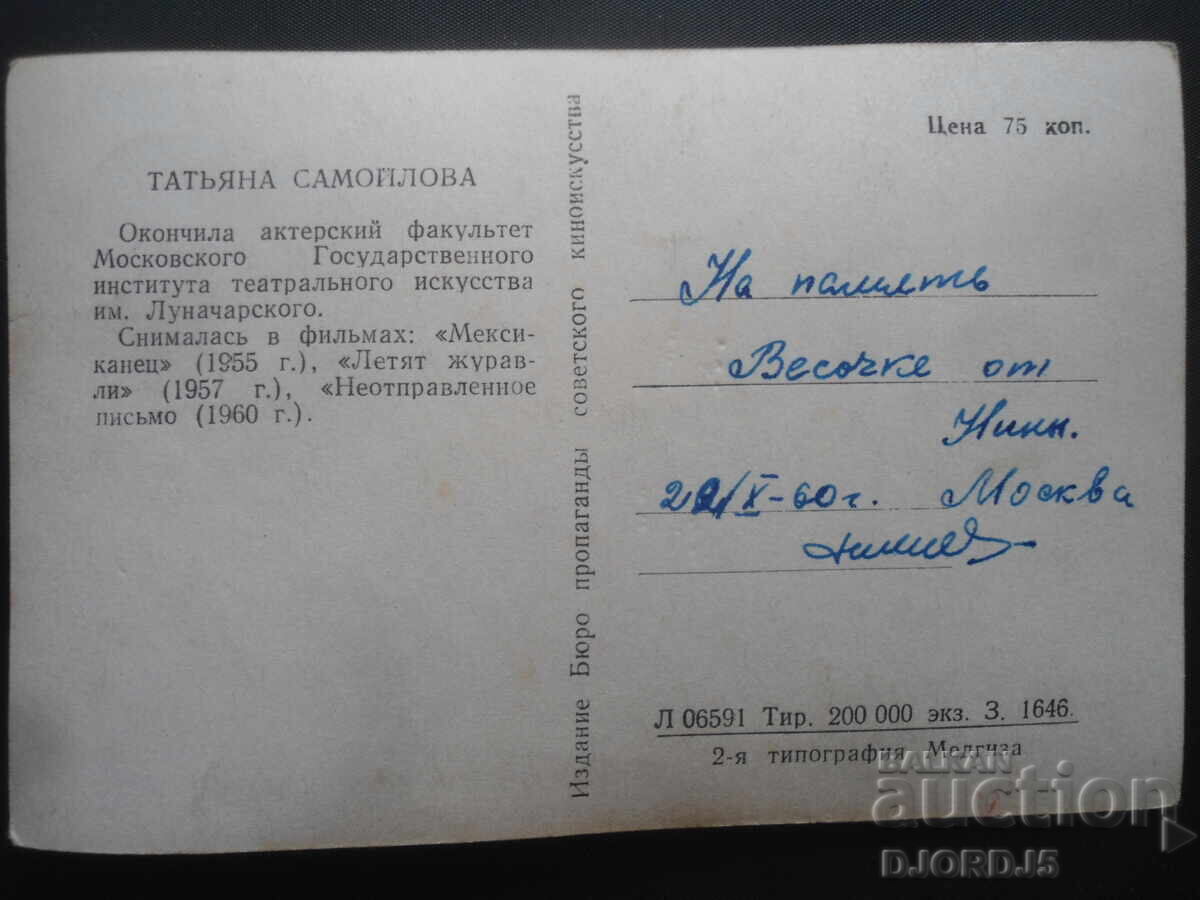 ТАТЬЯНА САМОЙЛОВА
Окончила актерский факультет
Московского Государственного
института театрального искусства
им. Луначарского.
Снималась в фильмах: «Мекси-
канец» (1955 г.), «Летят журав-
ли» (1957 г.), «Неотправленное
письмо (1960 г.).
Издание Бюро пропаганды советского киноискусства
Цена 75 коп.
На память
Весочке от
Нины.
/X-60г. Москва
Л 06591 Тир. 200 000 экз. З. 1646.
2-я типография Медгиза
BALKAN
auction
DJORDJ5